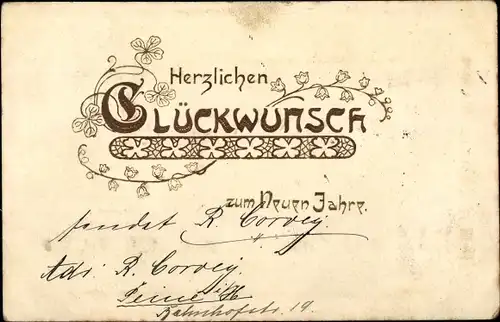 Herzlichen
Glückwunsch
zum Neuen Jahre.
sendet R. Corvey.
Adr. R. Corvey.
Peine i/H
Bahnhofstr. 19.